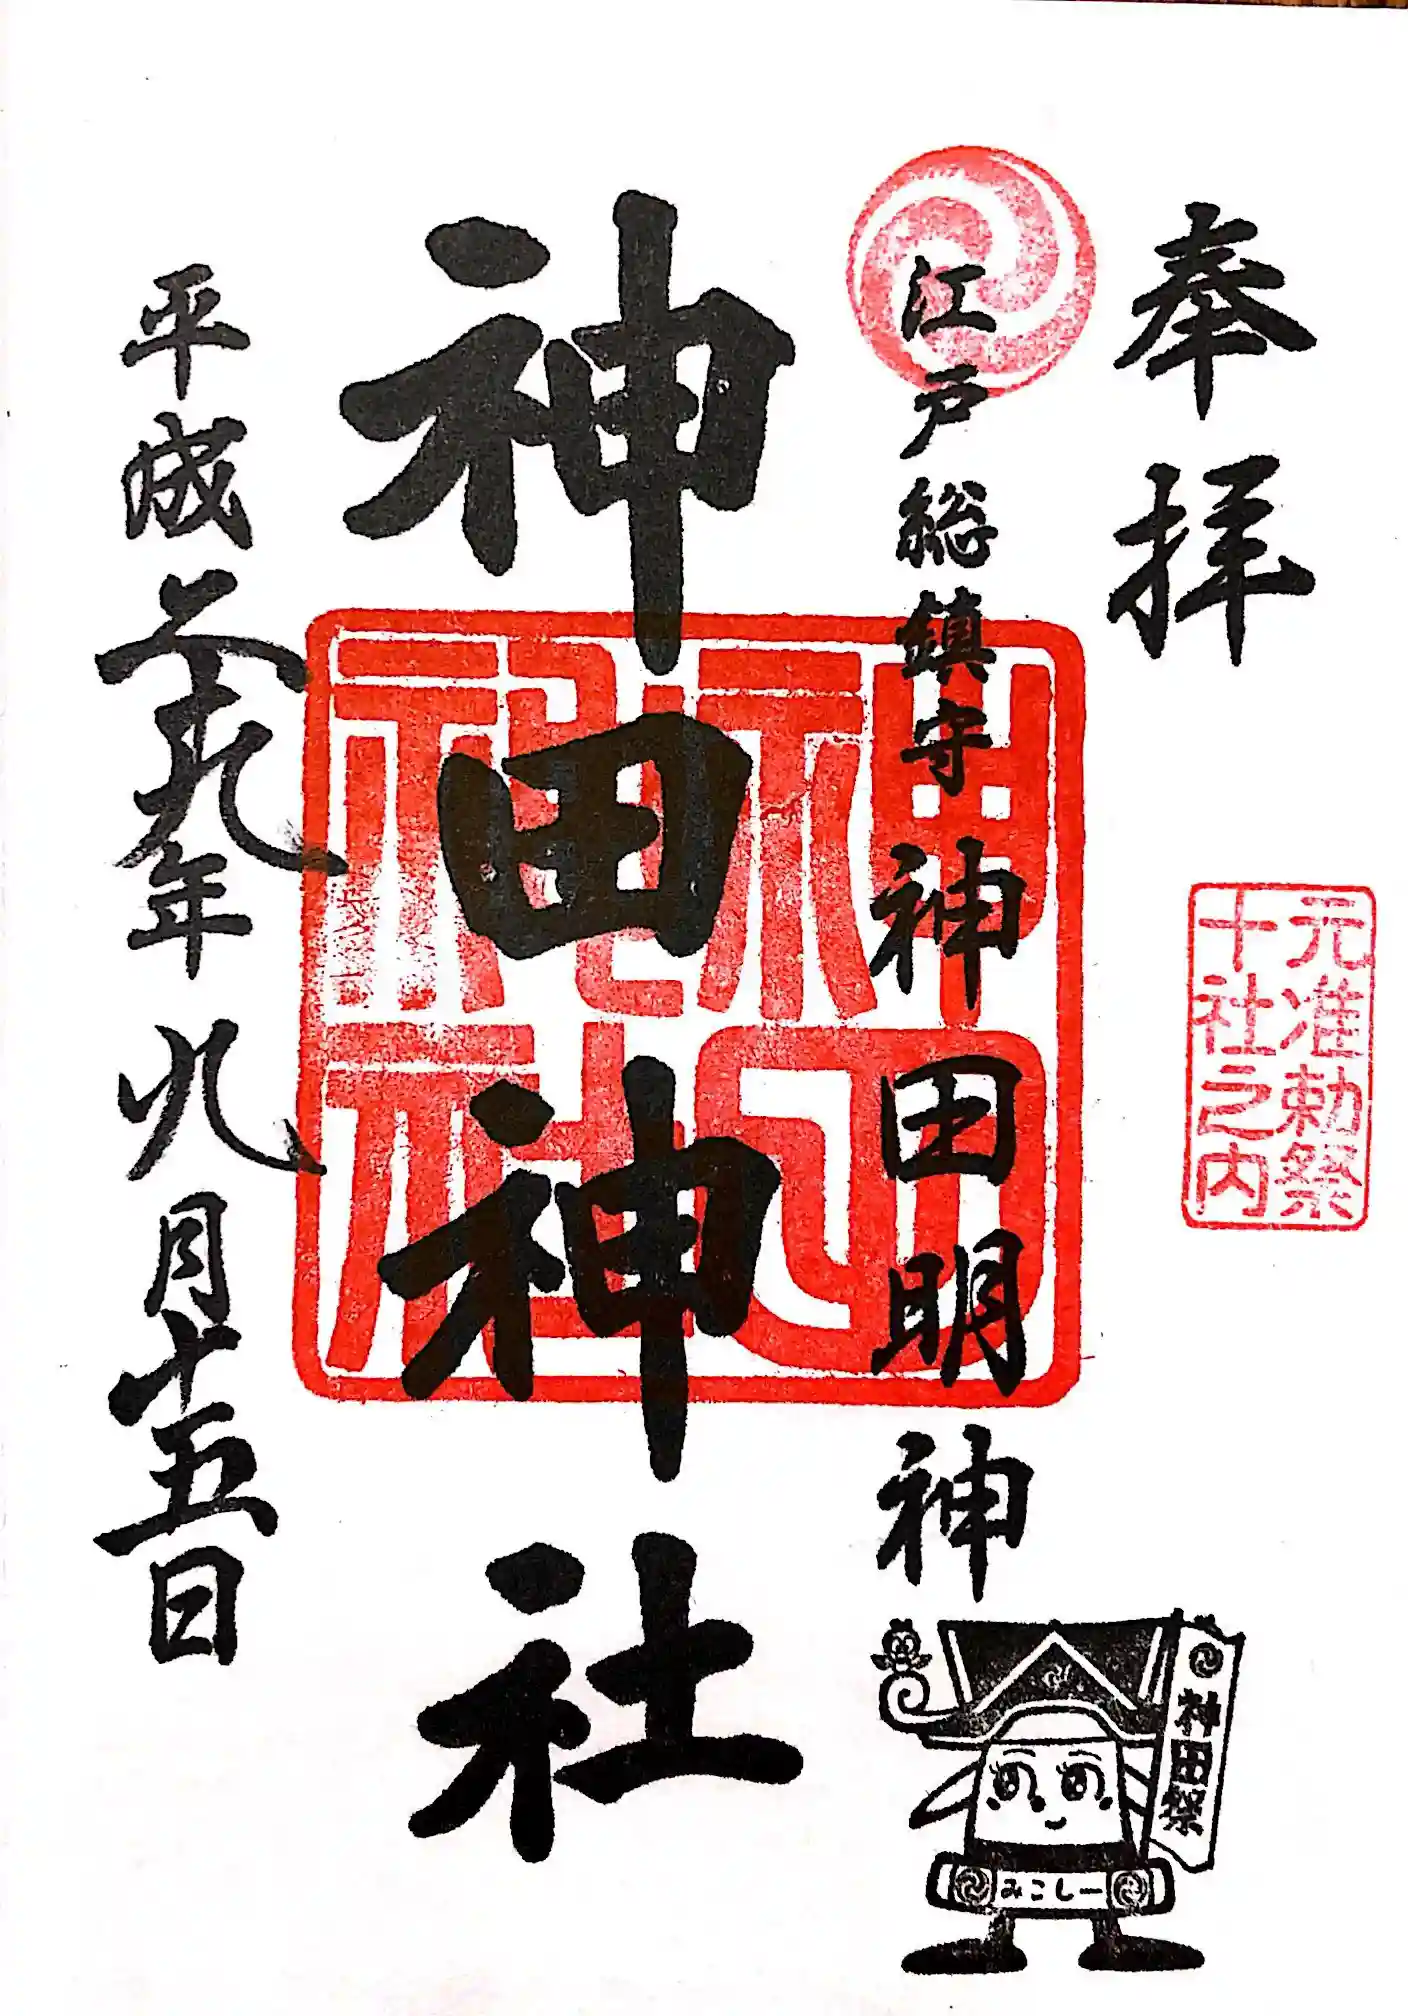 奉拝
元准勅祭
十社之内
江戸総鎮守神田明神
神田神社
平成二十九年九月十五日
神田祭
みこしー